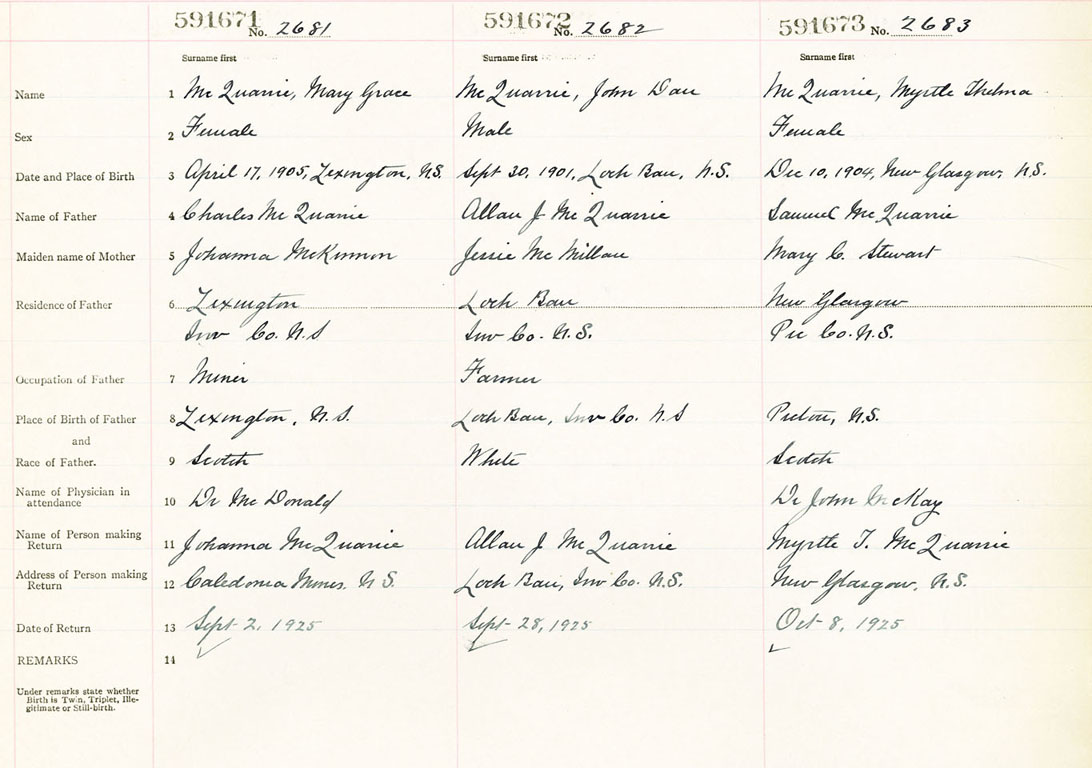 591671 No. 2681 591672 No. 2682 591673 No. 2683
Surname first Surname first Surname first
Name 1 Mc Quarrie, Mary Grace Mc Quarrie, John Dan Mc Quarrie, Myrtle Thelma
Sex 2 Female Male Female
Date and Place of Birth 3 April 17, 1905, Lexington, N.S. Sept 30, 1901, Loch Ban, N.S. Dec 10, 1904, New Glasgow, N.S.
Name of Father 4 Charles Mc Quarrie Allan J Mc Quarrie Samuel Mc Quarrie
Maiden name of Mother 5 Johanna McKinnon Jessie Mc Millan Mary C. Stewart
Residence of Father 6 Lexington Loch Ban New Glasgow
Inv Co. N.S Inv Co. N.S. Pic Co. N.S.
Occupation of Father 7 Miner Farmer
Place of Birth of Father 8 Lexington, N.S. Loch Ban, Inv Co. N S Pictou, N.S.
and
Race of Father. 9 Scotch White Scotch
Name of Physician in
attendance 10 Dr Mc Donald Dr John McKay
Name of Person making
Return 11 Johanna Mc Quarrie Allan J Mc Quarrie Myrtle T. Mc Quarrie
Address of Person making
Return 12 Caledonia Mines. N S. Loch Ban, Inv Co. N.S. New Glasgow, N.S.
Date of Return 13 Sept 2, 1925 Sept 28, 1925 Oct 8, 1925
REMARKS 14
Under remarks state whether
Birth is Twin, Triplet, Ille-
gitimate or Still-birth.